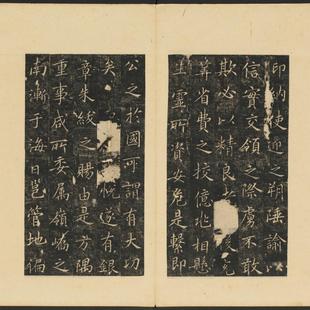 印納使迎之朔陲諭
信實交領之際虜不敢
欺必以精良
籌省費之校億兆相懸
生靈所資安危是繫即
公之於國可謂有大功
矣悦遂有銀
章朱紱之賜由是方隅
重事咸所委属嶺嶠之
南漸于海曰邕管地褊